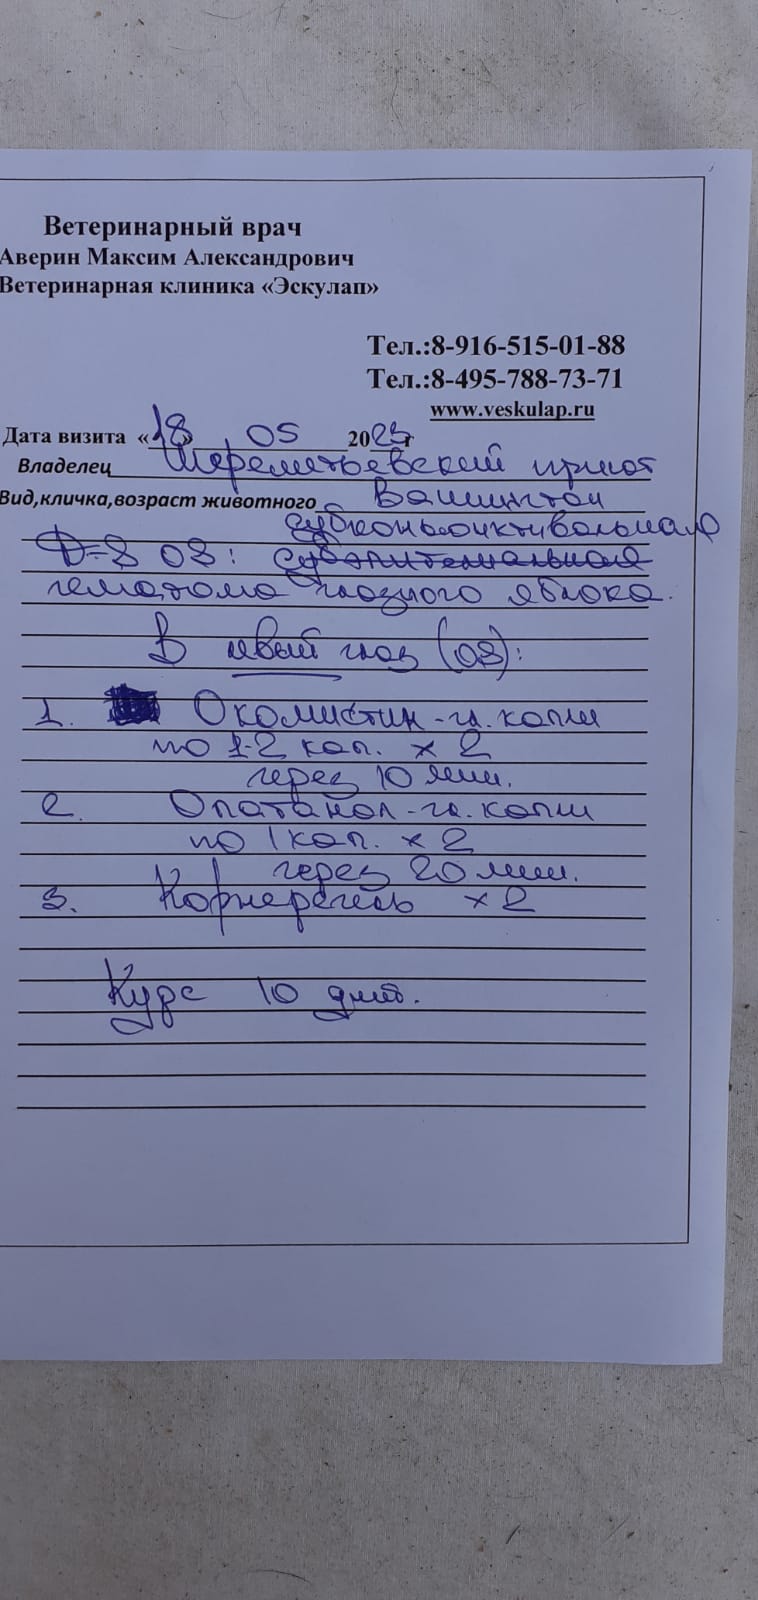 Ветеринарный врач
Аверин Максим Александрович
Ветеринарная клиника «Эскулап»
Тел.:8-916-515-01-88
Тел.:8-495-788-73-71
www.veskulap.ru
Дата визита «18» 05 2023г
Владелец Шереметьевский приют
Вид,кличка,возраст животного Вашингтон
субконъюнктивальная
D-з OS: субэпителиальная
гематома глазного яблока.
В левый глаз (OS):
1. Окомистин-гл. капли
по 1-2 кап. x 2
через 10 мин.
2. Опатанол-гл. капли
по 1 кап. x 2
через 20 мин.
3. Корнерегель x 2
Курс 10 дней.